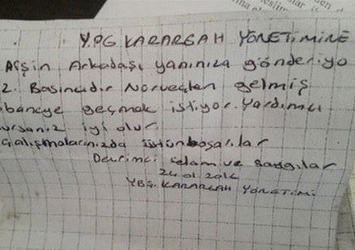 YPG KARARGAH YÖNETİMİNE
Afşin Arkadaşı yanınıza gönderiyo
z. Basıncıdır Norveçten gelmiş
baneye geçmek istiyor. Yardımcı
ursanız iyi olur.
Çalışmalarınızda üstünbaşarılar
Devrimci selam ve saygılar
YBŞ. KARARGAH YÖNETİMİ